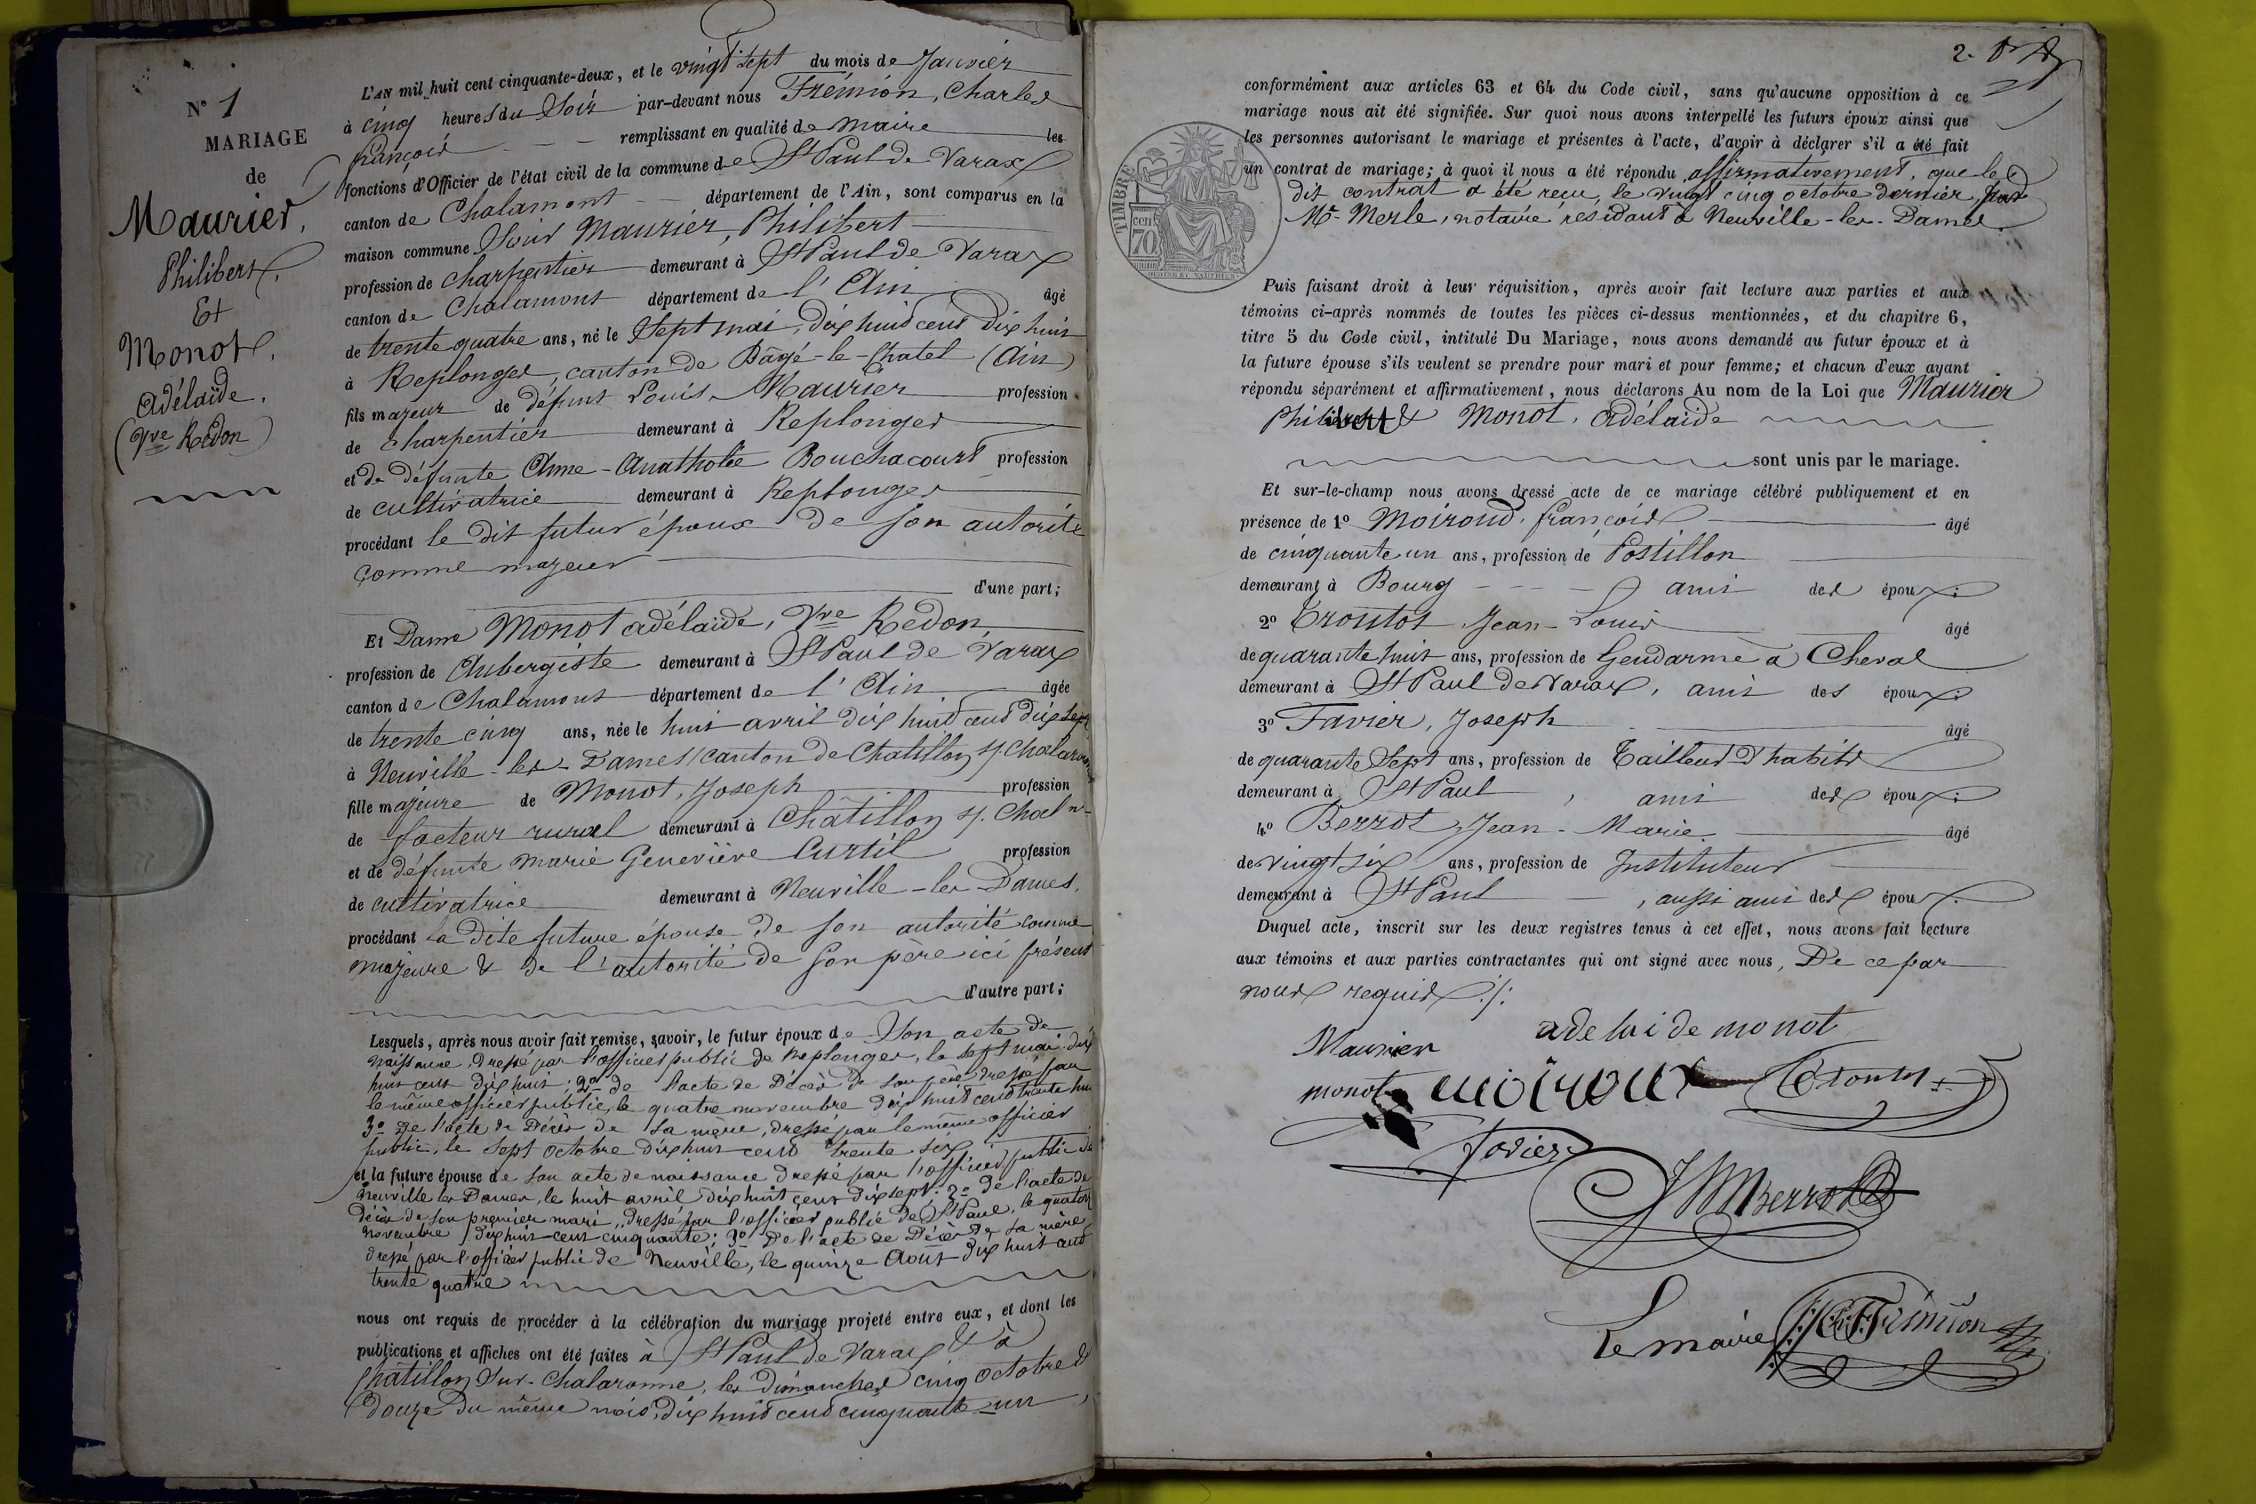 N° 1
MARIAGE
de
Maurier,
Philibert.
Et
Monot,
Adélaïde.
(Vve Redon)
L'AN mil huit cent cinquante-deux, et le vingt sept du mois de Janvier
à cinq heures du Soir par-devant nous Frémion, Charles
françois remplissant en qualité de maire les
fonctions d'Officier de l'état civil de la commune de St Paul de Varax
canton de Chalamont département de l'Ain, sont comparus en la
maison commune Sieur Maurier, Philibert
profession de charpentier demeurant à St Paul de Varax
canton de Chalamont département de l'Ain âgé
de trente quatre ans, né le Sept mai, dix huit cent dix huit
à Replonges, canton de Bâgé-le-Chatel (Ain)
fils majeur de défunt Louis Maurier profession
de charpentier demeurant à Replonges
et de défunte Anne-Anatholie Bouchacourt profession
de cultivatrice demeurant à Replonges
procédant le dit futur époux de son autorité
comme majeur
d'une part;
Et Dame Monot adélaïde, Vve Redon,
profession de Aubergiste demeurant à St Paul de Varax
canton de Chalamont département de l'Ain âgée
de trente cinq ans, née le huit avril dix huit cent dix sept
à Neuville-les-Dames (canton de Chatillon s/. Chalaronne
fille majeure de Monot, Joseph profession
de facteur rural demeurant à Châtillon s/. Chaln-
et de défunte marie Geneviève Curtil profession
de cultivatrice demeurant à Neuville-les-Dames,
procédant la dite future épouse de son autorité comme
majeure & de l'autorité de son père ici présent
d'autre part;
Lesquels, après nous avoir fait remise, savoir, le futur époux de Son acte de
naissance, dressé par l'officier public de Replonges, le sept mai dix
huit cent dix huit; 2° de l'acte de Décès de son père dressé par
le même officier public, le quatre novembre dix huit cent trente huit
3° De l'acte de Décès de sa mère, dressé par le même officier
public, le sept octobre dix huit cent trente six
et la future épouse de son acte de naissance dressé par l'officier public de
Neuville les Dames, le huit avril dix huit cent dix sept; 2° de l'acte de
décès de son premier mari, dressé par l'officier public de St Paul, le quatorze
novembre dix huit cent cinquante; 3° De l'acte de Décès de sa mère
dressé par l'officier public de Neuville, le quinze Août dix huit cent
trente quatre
nous ont requis de procéder à la célébration du mariage projeté entre eux, et dont les
publications et affiches ont été faites à St Paul de Varax & à
Châtillon-Sur-Chalaronne, les dimanches cinq octobre &
douze du même mois, dix huit cent cinquante-un
2.
TIMBRE
cen
70
conformément aux articles 63 et 64 du Code civil, sans qu'aucune opposition à ce
mariage nous ait été signifiée. Sur quoi nous avons interpellé les futurs époux ainsi que
les personnes autorisant le mariage et présentes à l'acte, d'avoir à déclarer s'il a été fait
un contrat de mariage; à quoi il nous a été répondu affirmativement, que le
dit contrat a été reçu, le vingt cinq octobre dernier, par
Me Merle, notaire résidant à Neuville-les-Dames.
Puis faisant droit à leur réquisition, après avoir fait lecture aux parties et aux
témoins ci-après nommés de toutes les pièces ci-dessus mentionnées, et du chapitre 6,
titre 5 du Code civil, intitulé Du Mariage, nous avons demandé au futur époux et à
la future épouse s'ils veulent se prendre pour mari et pour femme; et chacun d'eux ayant
répondu séparément et affirmativement, nous déclarons Au nom de la Loi que Maurier
Philibert & Monot, Adélaïde
sont unis par le mariage.
Et sur-le-champ nous avons dressé acte de ce mariage célébré publiquement et en
présence de 1° Moiroud, françois âgé
de cinquante un ans, profession de Postillon
demeurant à Bourg ami des époux.
2° Trontos Jean-Louis âgé
de quarante huit ans, profession de Gendarme à Cheval
demeurant à St Paul de Varax, ami des époux.
3° Favier, Joseph âgé
de quarante Sept ans, profession de Tailleur D'habits
demeurant à St Paul, ami des époux.
4° Berrot, Jean-Marie âgé
de vingt six ans, profession de Instituteur
demeurant à St Paul, aussi ami des époux.
Duquel acte, inscrit sur les deux registres tenus à cet effet, nous avons fait lecture
aux témoins et aux parties contractantes qui ont signé avec nous, De ce par
nous requis ./.
Maurier adelaide monot
monot moiroud
favier
JM Berrot
Le maire Ch. F. Frémion